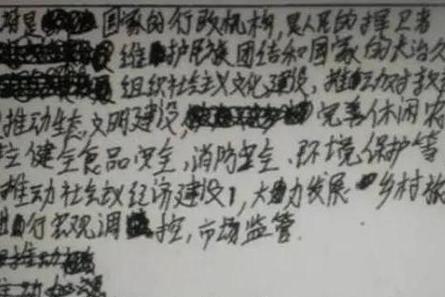 国家的行政机构,是人民的捍卫者
维护民族团结和国家的长治久
组织社会主义文化建设,推动
推动生态文明建设,完善休闲农
健全食品安全,消防安全、环境保护等
推动社会主义经济建设,大力发展乡村振
行宏观调控,市场监管
推动